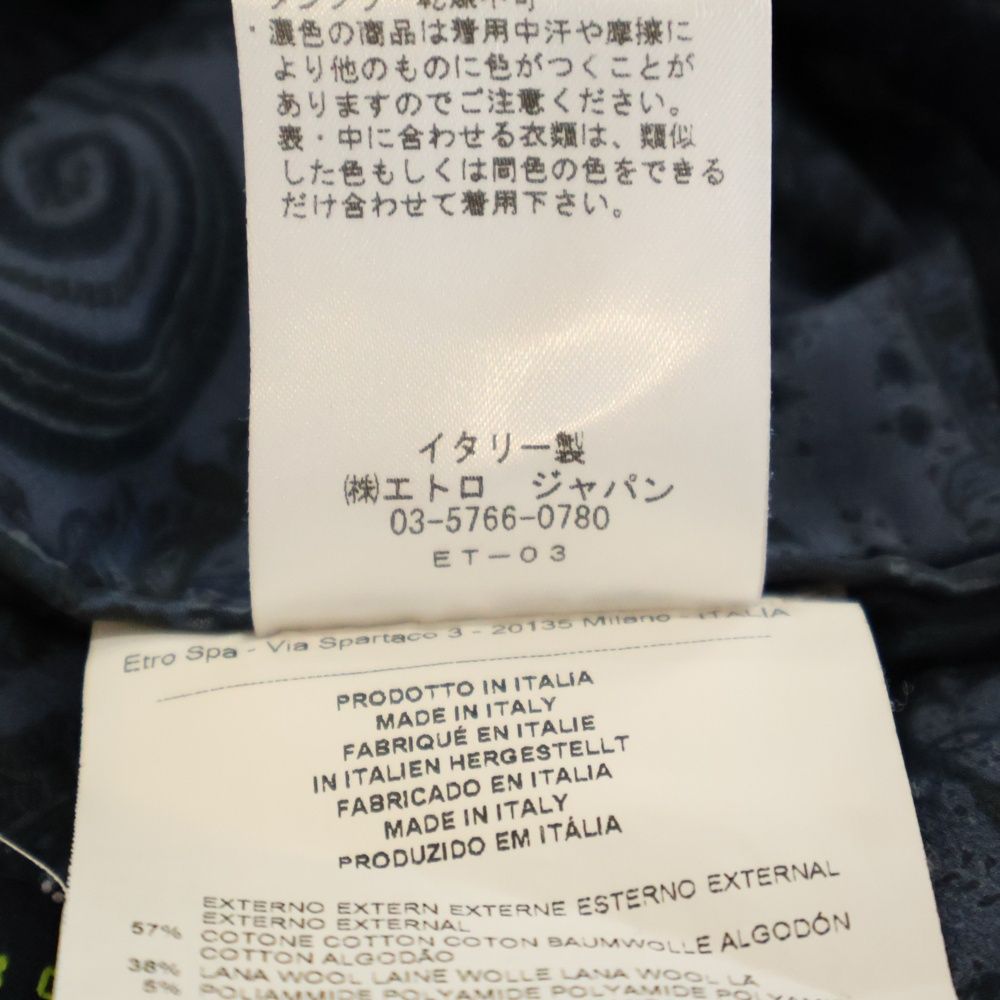 ・濃色の商品は着用中汗や摩擦に
より他のものに色がつくことが
ありますのでご注意ください。
表・中に合わせる衣類は、類似
した色もしくは同色の色をできる
だけ合わせて着用下さい。
イタリー製
㈱エトロ ジャパン
03-5766-0780
ET-03
Etro Spa - Via Spartaco 3 - 20135 Milano - ITALIA
PRODOTTO IN ITALIA
MADE IN ITALY
FABRIQUÉ EN ITALIE
IN ITALIEN HERGESTELLT
FABRICADO EN ITALIA
MADE IN ITALY
PRODUZIDO EM ITÁLIA
EXTERNO EXTERN EXTERNE ESTERNO EXTERNAL
EXTERNO EXTERNAL
57% COTONE COTTON COTON BAUMWOLLE ALGODÓN
COTTON ALGODÃO
38% LANA WOOL LAINE WOLLE LANA WOOL LÃ
5% POLIAMMIDE POLYAMIDE POLYAMIDE